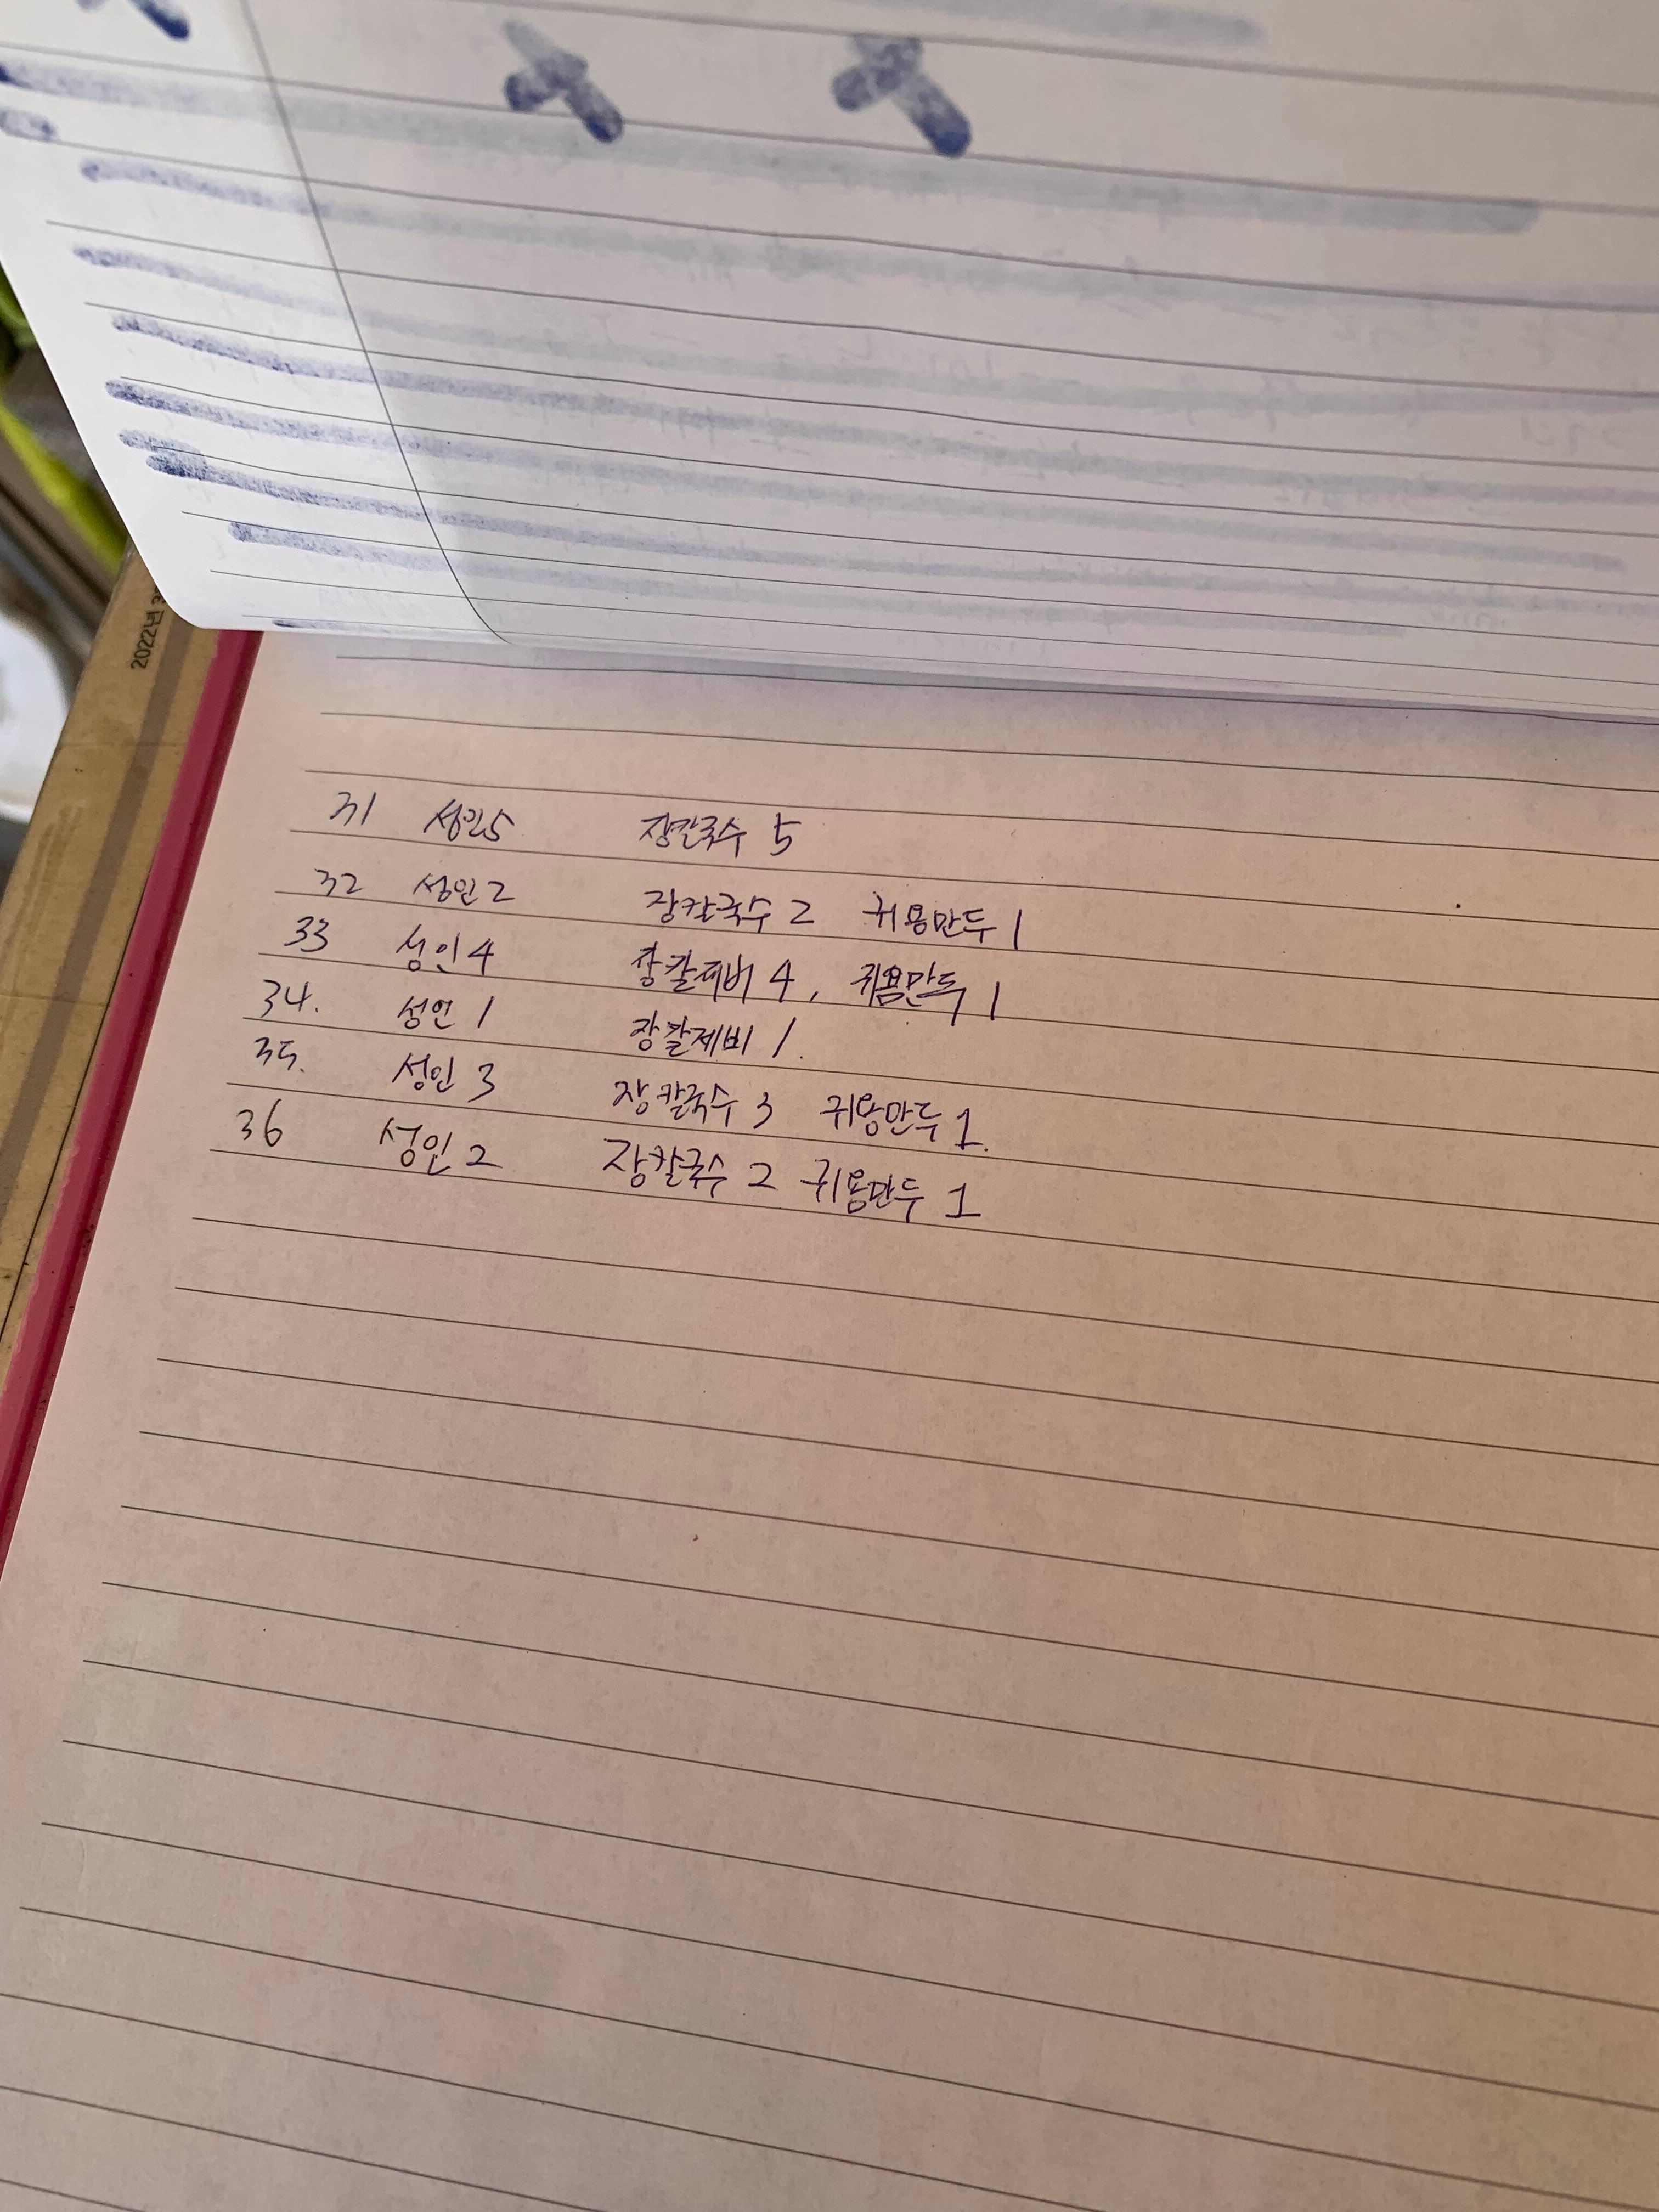 2022년 3
31 성인5 장칼국수 5
32 성인 2 장칼국수 2 귀용만두 1
33 성인 4 장칼제비 4, 귀용만두 1
34. 성인 1 장칼제비 1.
35. 성인 3 장칼국수 3 귀용만두 1.
36 성인 2 장칼국수 2 귀용만두 1